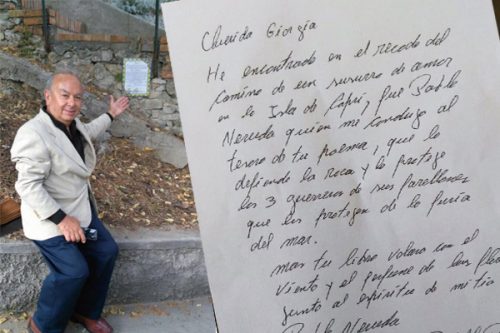 Querida Giorgia
He encontrado en el recodo del
camino de un susurro de amor
en la Isla de Capri, fue Pablo
Neruda quien me condujo al
tesoro de tu poema, que lo
defiende la roca y lo protege
los 3 guerreros de sus farellones
que los protegen de la furia
del mar.
mas tu libro volara con el
viento y el perfume de las
junto al espiritu de mi tio
Pablo Neruda